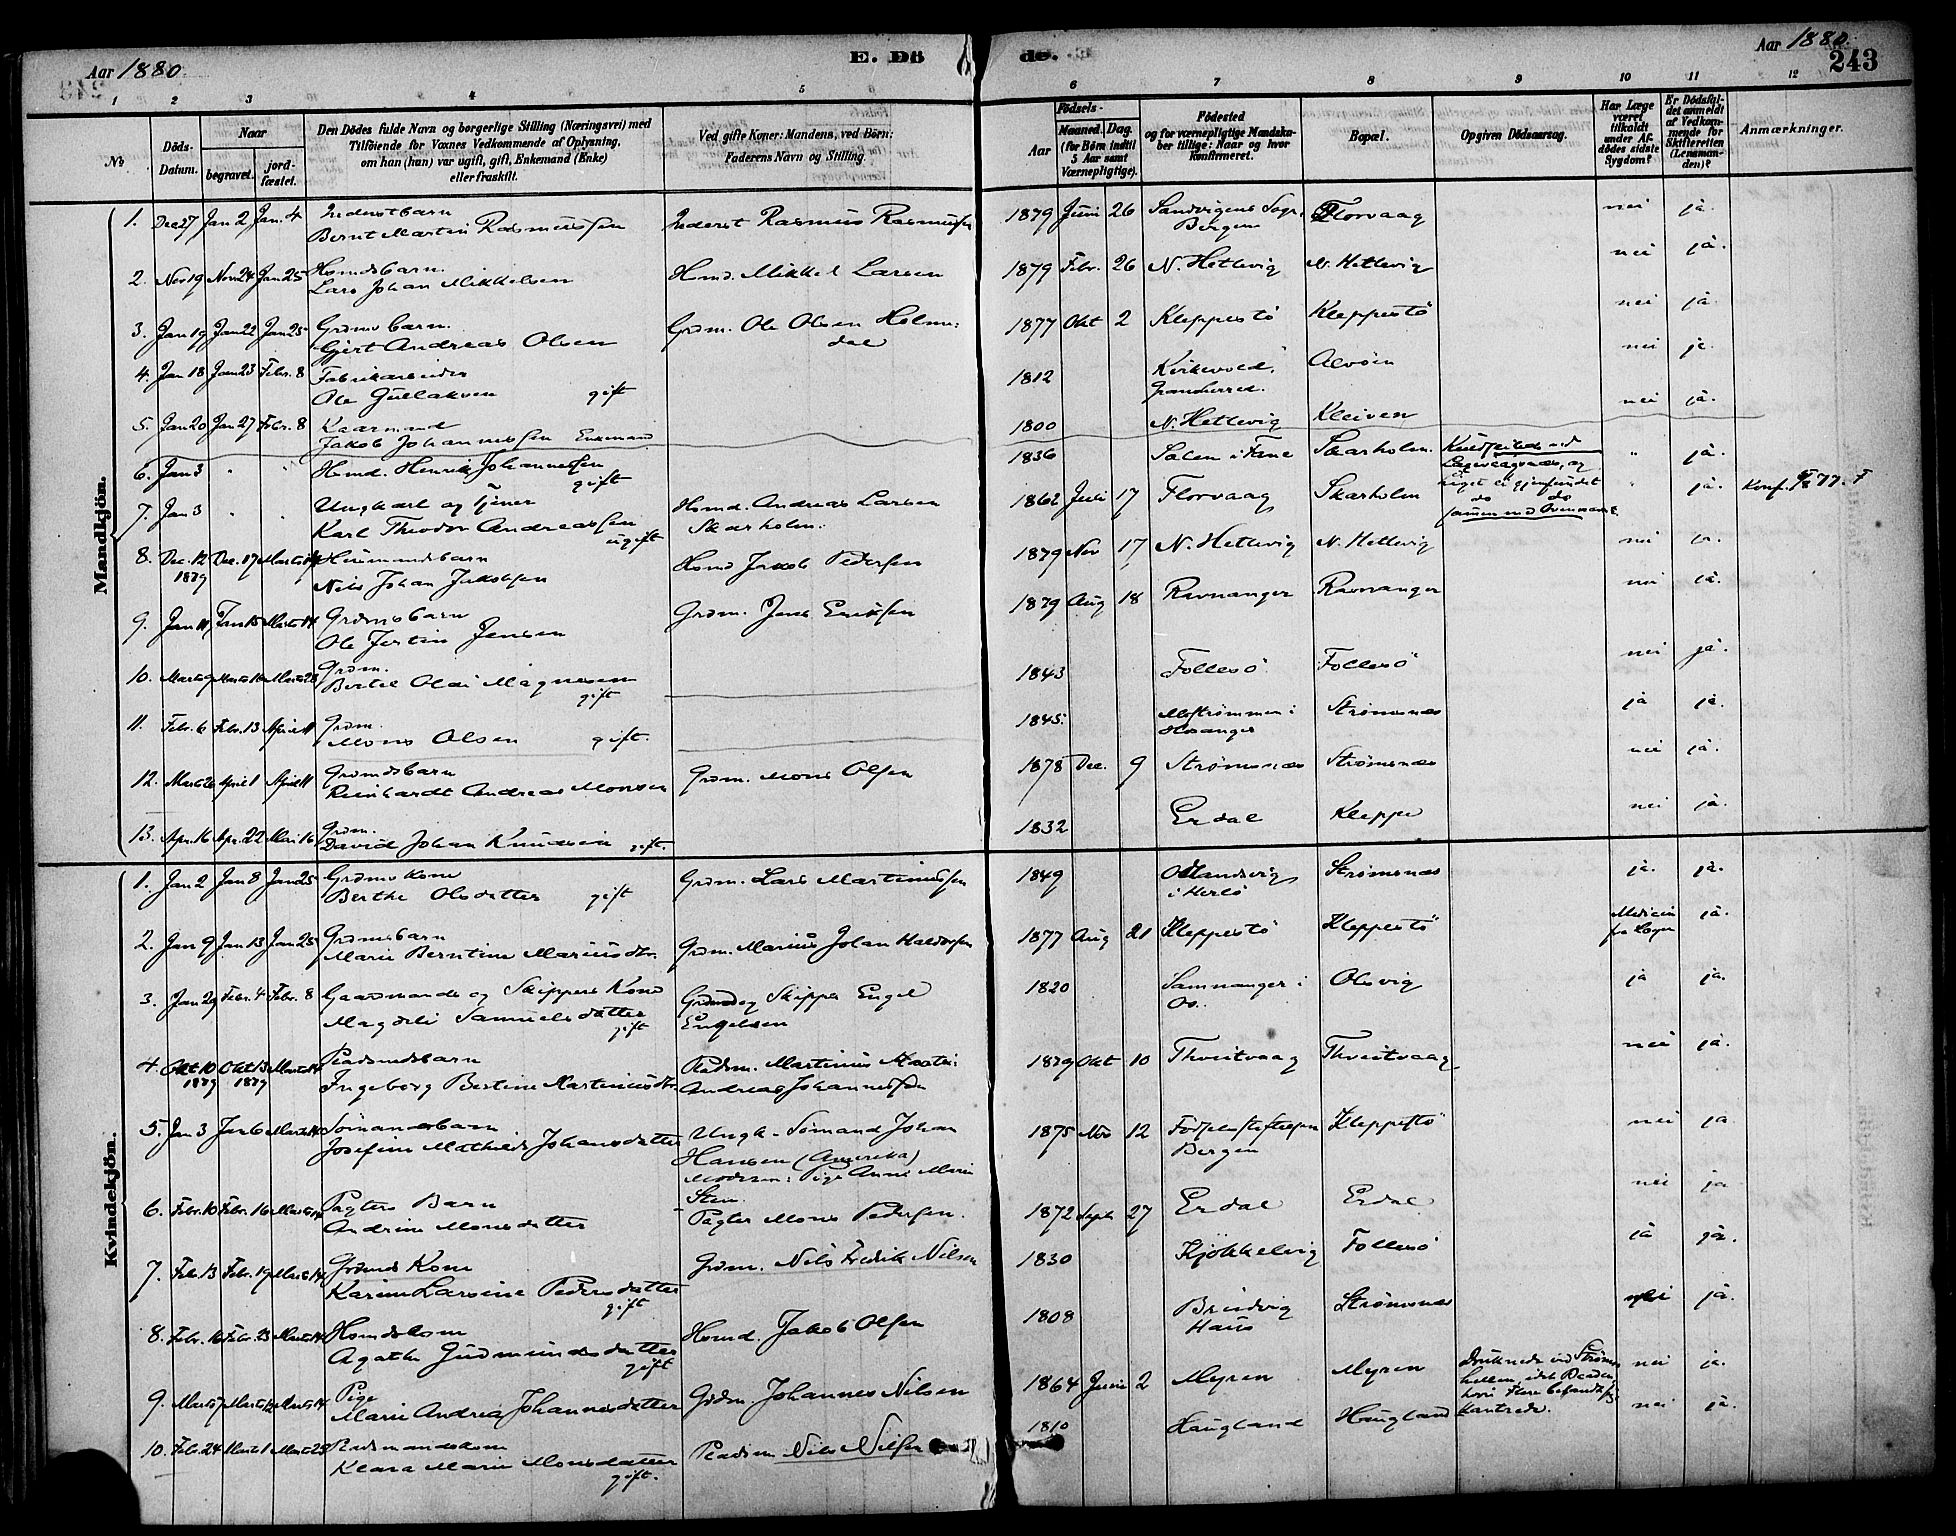 Aar 1880.
E. Dö de.
Aar 1880.
243
1 2 3 4 5 6 7 8 9 10 11 12
No
Döds-Datum.
Naar
begravet.
jord-fæstet.
Den Dödes fulde Navn og borgerlige Stilling (Næringsvei) med
Tilföiende for Voxnes Vedkommende af Oplysning,
om han (hun) var ugift, gift, Enkemand (Enke)
eller fraskilt.
Ved gifte Koner: Mandens, ved Börn:
Faderens Navn og Stilling.
Födsels-
Aar
Maaned. Dag.
(for Börn indtil
5 Aar samt
Værnepligtige).
Födested
og for værnepligtige Mandska-
ber tillige: Naar og hvor
konfirmeret.
Bopæl.
Opgiven Dödsaarsag.
Har Læge
været
tilkaldt
under Af-
dödes sidste
Sygdom?
Er Dödsfal-
det anmeldt
af Vedkom-
mende for
Skifteretten
(Lensman-
den)?
Anmærkninger.
Mandkjön.
1. Dec 27 Jan 2 Jan. 4 Inderstbarn
Bernt Martin Rasmussen Inderst Rasmus Rasmussen 1879 Juni 26 Sandvigens Sogn, Bergen Florvaag nei ja.
2. Nov 19 Nov 24 Jan 25 Husmdsbarn.
Lars Johan Mikkelsen Husmd. Mikkel Larsen 1879 Febr. 26 N. Hetlevig N. Hetlevig nei ja.
3. Jan 19 Jan 22 Jan 25 Grdmsbarn.
Gjert Andreas Olsen Grdm. Ole Olsen Holmedal 1877 Okt 2 Kleppestö Kleppestö nei ja.
4. Jan 18 Jan 23 Febr. 8 Fabrikarbeider
Ole Gullaksen gift 1812 Alvöen nei ja.
5. Jan 20 Jan 27 Febr. 8 Kaarmand
Jakob Johannessen Enkemand 1800 N. Hetlevig Kleiven nei ja.
6. Jan 3 " " Husmd. Henrik Johannessen
gift 1836 Sælen i Fane Skarholm. Kuldseilede ved " ja.
7. Jan 3 " " Ungkarl og Tjener
Karl Theodor Andreassen
ugift Husmd. Andreas Larsen
Skarholm. 1862 Juli 17 Florvaag Skarholm do do " ja. Konf. 77. F
8. Dec. 12 1879 Dec. 17 Marts 14 Husmandsbarn
Nils Johan Jakobsen Husmd Jakob Pedersen 1879 Nov 17 N. Hetlevig N. Hetlevig nei ja.
9. Jan 11 Jan 15 Marts 14 Grdmsbarn
Ole Jentin Jensen Grdm. Jens Eriksen 1879 Aug 18 Ravnanger Ravnanger nei ja.
10. Marts 9 Marts 16 Marts 28 Grdm.
Bertel Olai Magnesen
gift 1843 Follesö Follesö nei ja.
11. Febr. 6 Febr. 13 April 11 Grdm.
Mons Olsen gift. 1845. Mostrømmen i
Hosanger Strømsnæs ja ja.
12. Marts 26 April 1 April 11 Grdmdsbarn
Reinhardt Andreas Monsen Grdm. Mons Olsen 1878 Dec. 9 Strømsnæs Strømsnæs nei ja.
13. Apr. 16 Apr. 22 Mai 16 Grdm.
David Johan Knudsen gift. 1832 Erdal Kleppe nei ja.
Kvindekjön.
1. Jan 2 Jan 8 Jan 25 Grdms kone
Berthe Olsdatter gift Grdm. Lars Martinussen 1849 i Herlö Strømsnæs ja. ja.
2. Jan 9 Jan 13 Jan 25 Grdmsbarn
Marie Berntine Mariusdtr. Grdm. Marius Johan Haldorsen 1877 Aug 21 Kleppestö Kleppestö Medicin
fra Læge ja.
3. Jan 29 Febr. 4 Febr. 8 Gaardmands og Skippers Kone
Magdeli Samuelsdatter
gift Grdmd og Skipper Engel
Engelsen 1820 Samnanger i
Os. Olsvig ja ja.
4. Okt 10 1879 Okt 13 1879 Marts 14 Pladsmdsbarn
Ingeborg Bertine Martinusdtr. Pladsm. Martinus
Andreas Johannessen 1879 Okt 10 Thveitvaag Thveitvaag nei ja.
5. Jan 3 Jan 6 Marts 14 Sömandsbarn
Josefine Mathilde Johansdatter Ungk. Sömand Johan
Hansen (Amerika)
Moderen: Pige Anne Marie
Sten. 1875 Nov 12 Födselsstiftelsen
Bergen Kleppestö nei ja
6. Febr. 10 Febr. 16 Marts 14 Pagters Barn
Andrine Monsdatter Pagter Mons Pedersen. 1872 Septr 27 Erdal Erdal nei ja
7. Febr. 13 Febr. 19 Marts 14 Grdmds Kone
Karen Larsine Pedersdatter
gift Grdm. Nils Fredrik Nilsen 1830 Kjökkelvig Follesö ja ja.
8. Febr. 16 Febr. 23 Marts 14 Husmdskone
Agathe Gudmundsdatter
gift Husmd. Jakob Olsen 1808 Bruvig
Haus Strømsnæs nei ja.
9. Marts 7 Marts 12 Marts 14 Pige
Marie Andrea Johannesdatter Grdm. Johannes Nilsen 1864 Juni 2 Myren Myren Druknede ved Strøms-
hvori Flere befandt sig
kantrede. nei ja.
10. Febr. 24 Marts 1 Marts 28 Pladsmandskone
Klara Marie Monsdatter
gift. Pladsm Nils Nilsen 1810 Haugland Haugland nei ja.